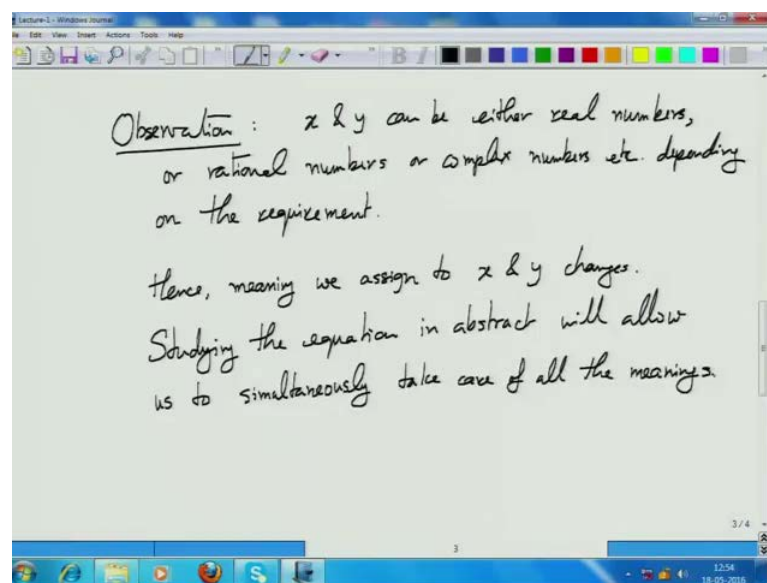 Lecture-1 - Windows Journal
Edit View Insert Actions Tools Help
Observation : x & y can be either real numbers,
or rational numbers or complex numbers etc. depending
on the requirement.
Hence, meaning we assign to x & y changes.
Studying the equation in abstract will allow
us to simultaneously take care of all the meanings.
3 / 4
3
12:54
18-05-2016